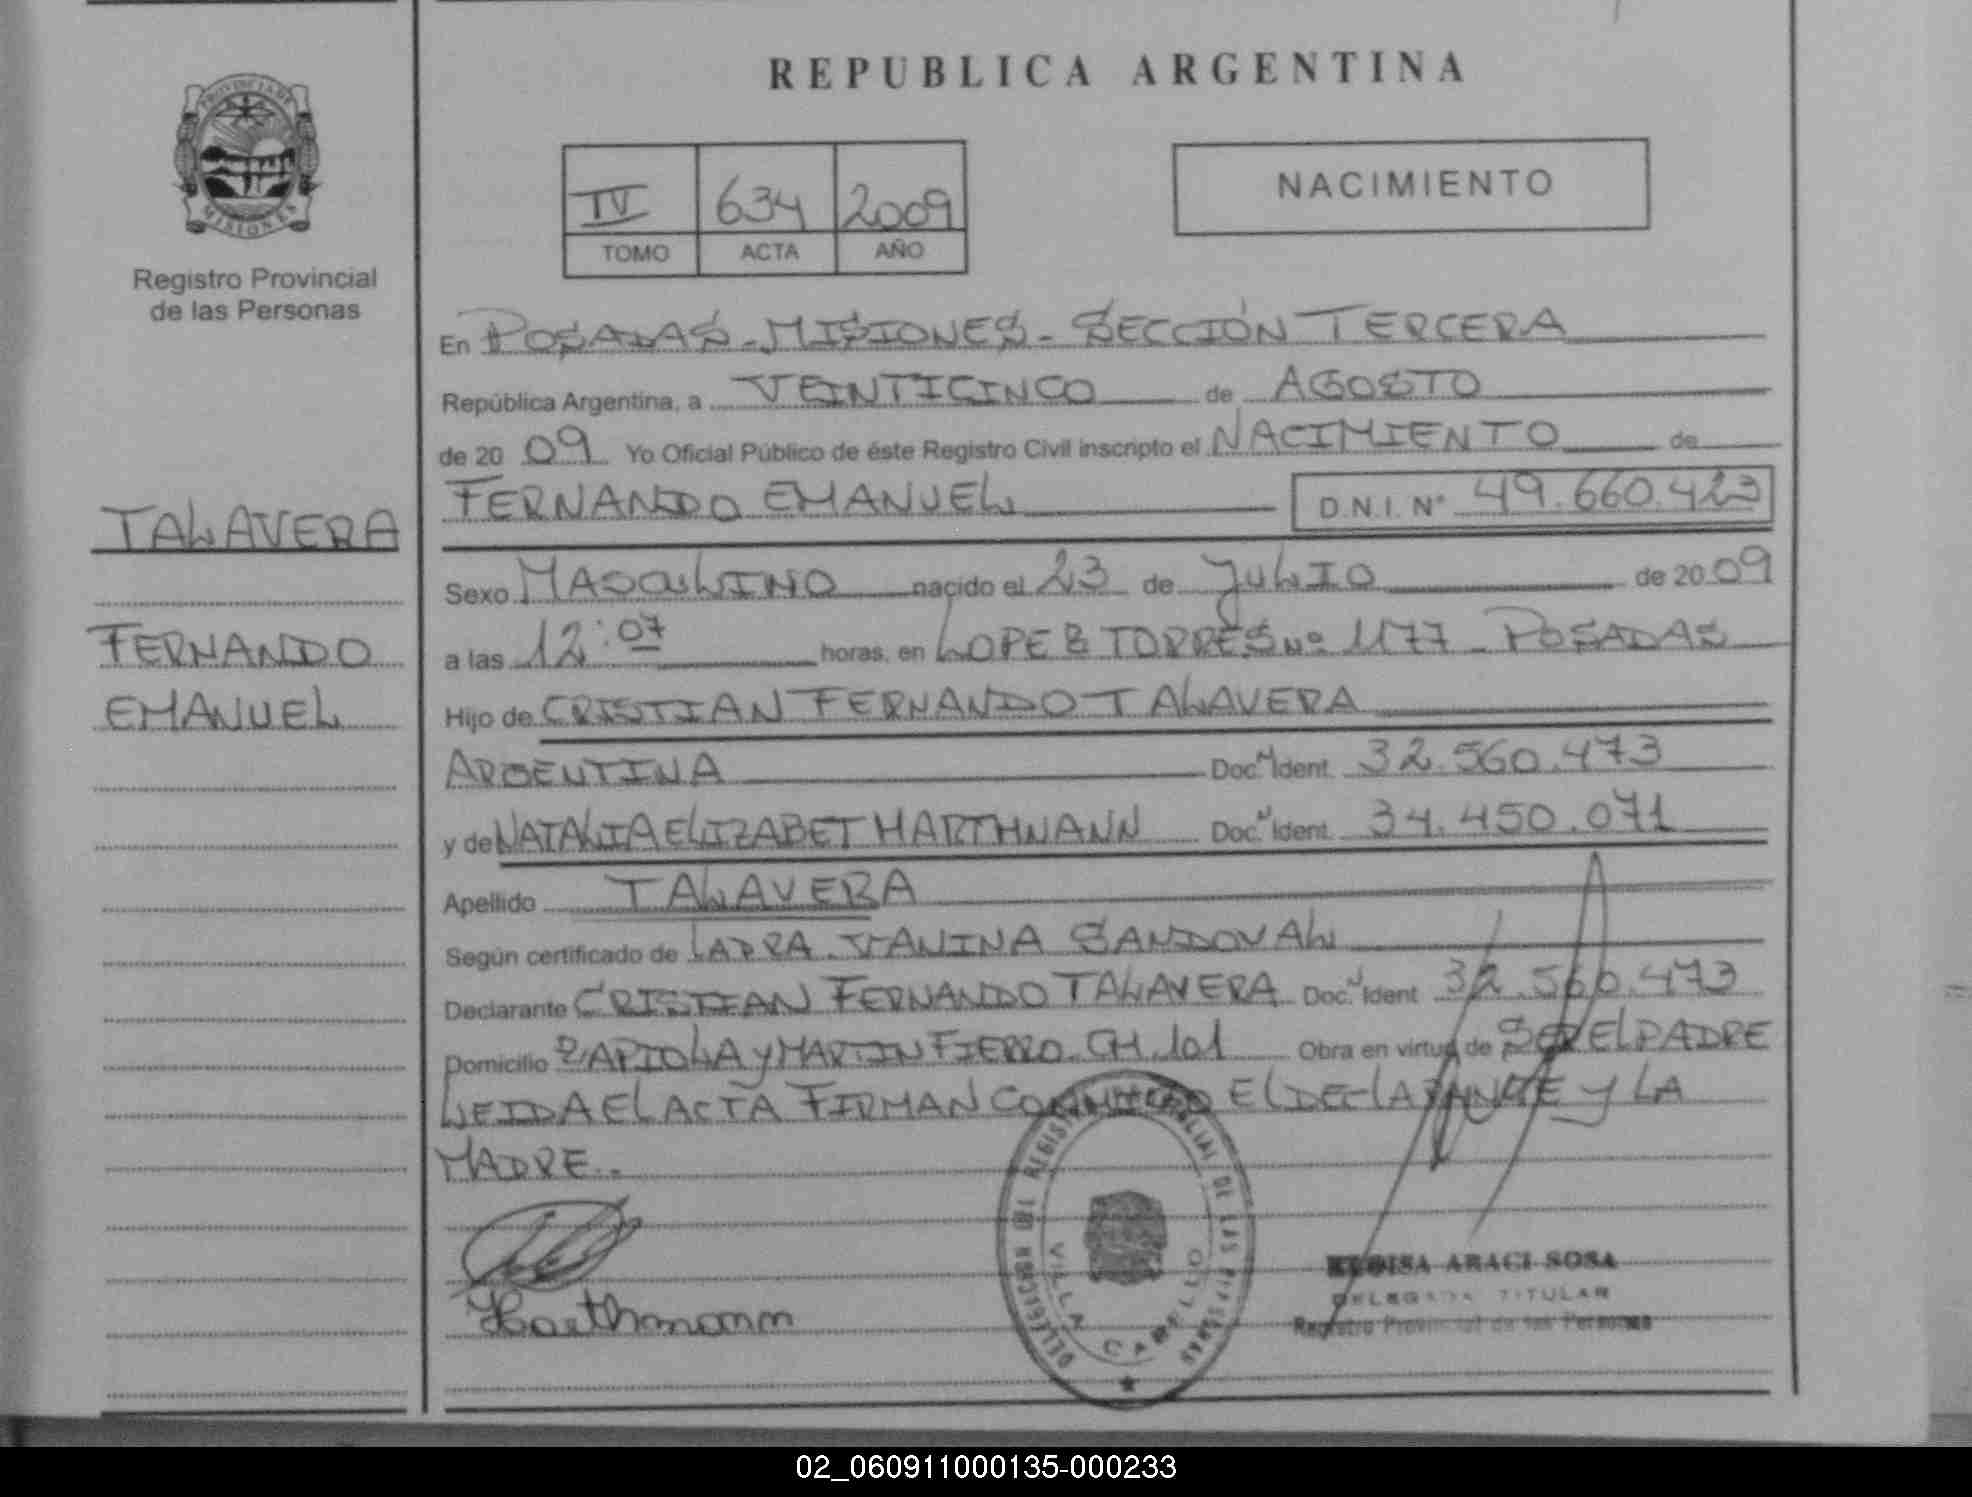 REPUBLICA ARGENTINA
PROVINCIA DE
MISIONES
Registro Provincial
de las Personas
IV 634 2009
TOMO ACTA AÑO
NACIMIENTO
En POSADAS - MISIONES - SECCIÓN TERCERA
República Argentina, a VEINTICINCO de AGOSTO
de 20 09 Yo Oficial Público de éste Registro Civil inscripto el NACIMIENTO de
FERNANDO EMANUEL D.N.I. Nº 49.660.423
TALAVERA
FERNANDO
EMANUEL
Sexo MASCULINO nacido el 23 de JULIO de 20 09
a las 12:07 horas, en LOPEZ TORRES Nº 1177 - POSADAS
Hijo de CRISTIAN FERNANDO TALAVERA
ARGENTINA Doc. Ident. 32.560.473
y de NATALIA ELIZABET HARTHMANN Doc. Ident. 34.450.071
Apellido TALAVERA
Según certificado de LA DRA. VANINA SANDOVAL
Declarante CRISTIAN FERNANDO TALAVERA Doc. Ident 32.560.473
Domicilio ZAPIOLA Y MARTIN FIERRO. CH. 101 Obra en virtud de SER EL PADRE
LEIDA EL ACTA FIRMAN CONMIGO EL DECLARANTE Y LA
MADRE.
Harthmann
VILLA CABELLO
ELOISA ARACI SOSA
DELEGADA TITULAR
Registro Provincial de las Personas
02_060911000135-000233